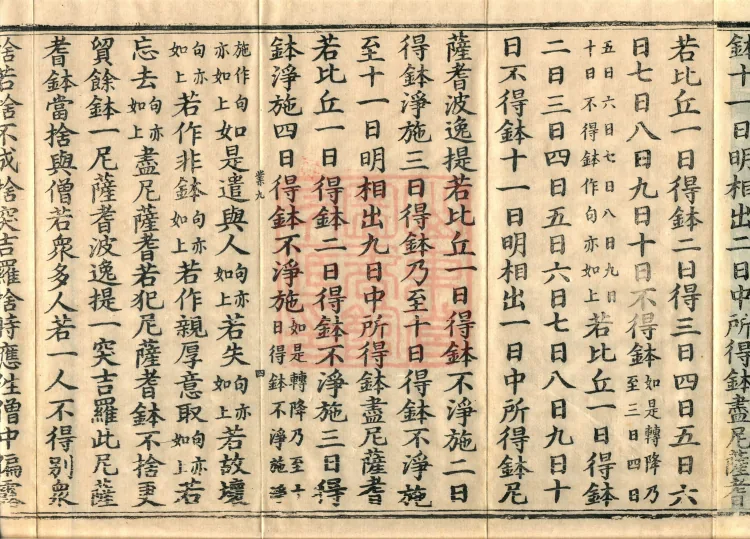 鉢十一日明相出二日中所得鉢盡尼薩耆
若比丘一日得鉢二日得三日四日五日六
日七日八日九日十日不得鉢如是轉降乃至三日四日
五日六日七日八日九日十日不得鉢作句亦如上若比丘一日得鉢
二日三日四日五日六日七日八日九日十
日不得鉢十一日明相出一日中所得鉢尼
薩耆波逸提若比丘一日得鉢不淨施二日
得鉢淨施三日得鉢乃至十日得鉢不淨施
至十一日明相出九日中所得鉢盡尼薩耆
若比丘一日得鉢二日得鉢不淨施三日得
鉢淨施四日得鉢不淨施如是轉降乃至十日得鉢不淨施淨
業九 四
施作句亦如上如是遣與人句亦如上若失句亦如上若故壞
句亦如上若作非鉢句亦如上若作親厚意取句亦如上若
忘去句亦如上盡尼薩耆若犯尼薩耆鉢不捨更
貿餘鉢一尼薩耆波逸提一突吉羅此尼薩
耆鉢當捨與僧若衆多人若一人不得別衆
捨若捨不成捨突吉羅捨時應往僧中偏露